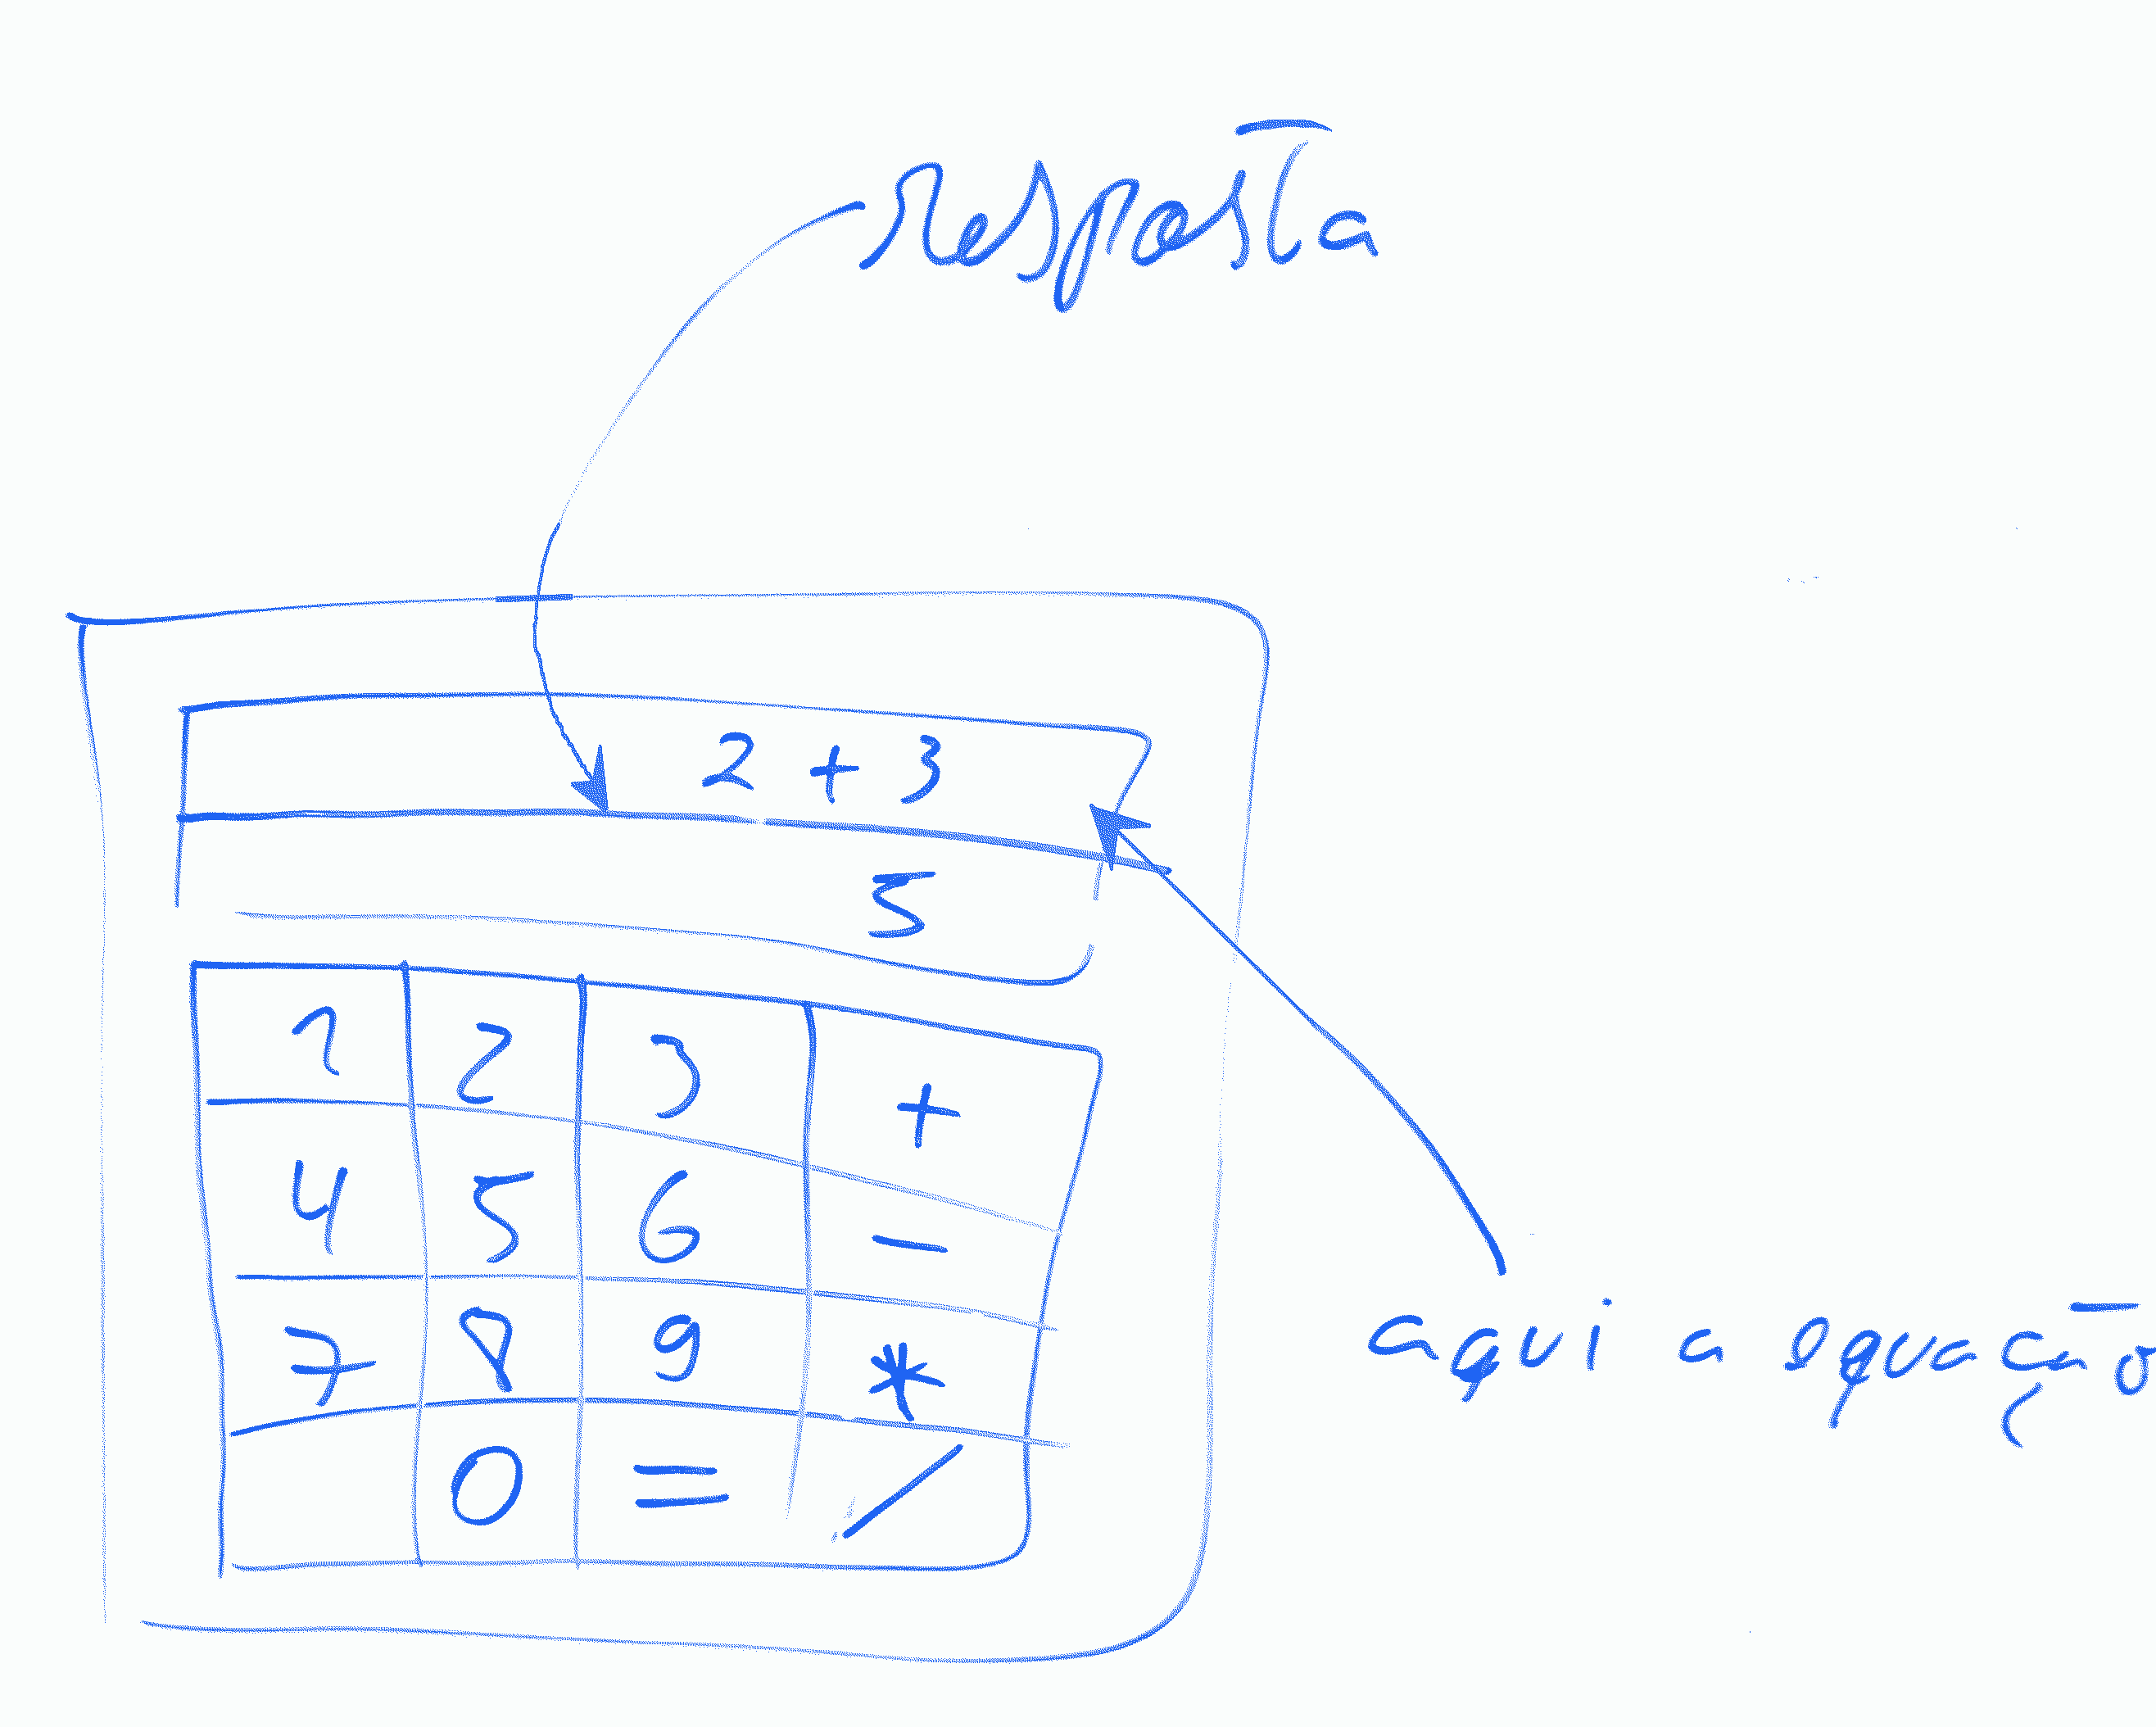 resposta
2 + 3
5
1 2 3 +
4 5 6 -
7 8 9 *
0 = /
aqui a equação